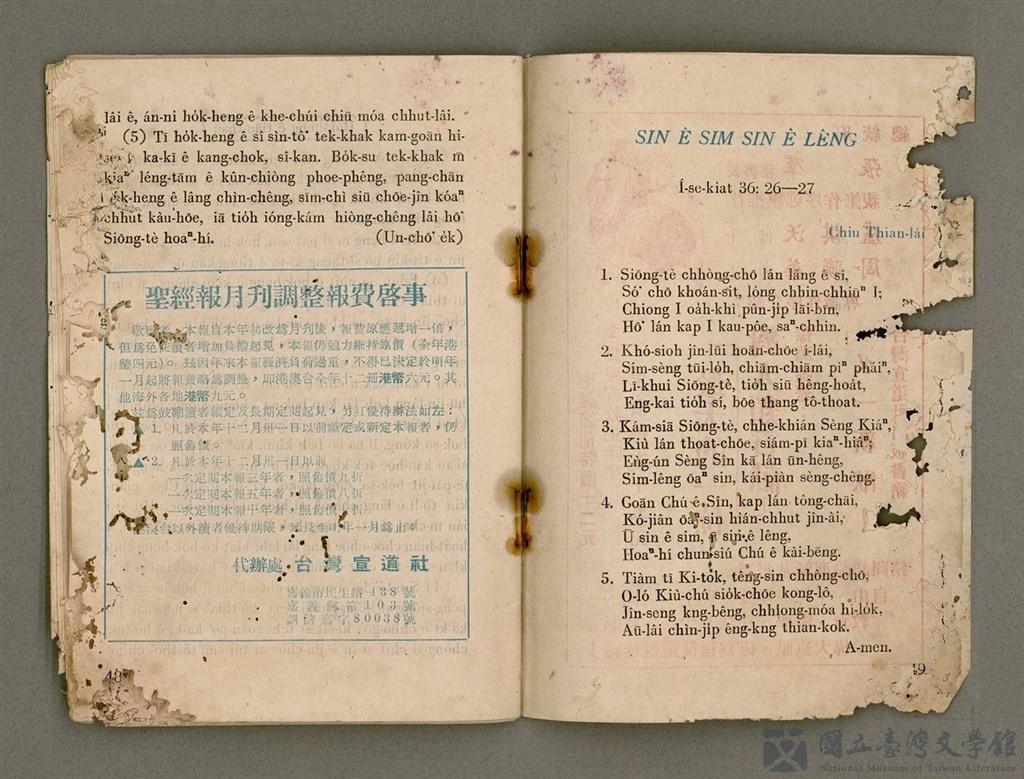 lâi ê, án-ni ho̍k-heng ê khe-chúi chiū móa chhut-lâi.
(5) Tī ho̍k-heng ê sî sìn-tô͘ tek-khak kam-goān hi-
ka-kī ê kang-chok, sî-kan. Bo̍k-su tek-khak m̄
kiaⁿ léng-tām ê kûn-chiòng phoe-phêng, pang-chān
ho̍k-heng ê lâng chìn-chêng, sīm-chì siū chōe-jîn kóaⁿ
chhut kàu-hōe, iā tio̍h ióng-kám hiòng-chêng lâi hō͘
Siōng-tè hoaⁿ-hí.
(Un-chô͘ e̍k)
聖經報月刊調整報費啓事
敬啓者、本報自本年初改爲月刊後，報費原應遞增一倍，
但爲免使讀者增加負擔起見，本報仍勉力維持原價（全年港
幣四元）。茲因年來本報經濟負荷過重，不得已決定於明年
一月起將報費略爲調整，即港澳台全年十二册港幣六元。其
他海外各地港幣九元。
茲爲鼓勵讀者續定及長期定閱起見，另訂優待辦法如左：
▲ 1. 凡於本年十二月卅一日以前續定或新定本報者，仍
照舊價。
▲ 2. 凡於本年十二月卅一日以前
一次定閱本報三年者，照舊價九折
一次定閱本報五年者，照舊價八折
一次定閱本報十年者，照舊價七折
港澳台以外讀者優待期限，延長至明年一月爲止。
代辦處 台灣宣道社
嘉義市民生路438號
嘉義郵箱103號
劃儲嘉字80038號
48
SIN Ê SIM SIN Ê LÊNG
Í-se-kiat 36: 26—27
Chiu Thian-lâi
1. Siōng-tè chhòng-chō lán lâng ê sî,
Só͘ chō khoán-sit, lóng chhin-chhiūⁿ I;
Chiong I oa̍h-khì pûn-ji̍p lāi-bīn,
Hō͘ lán kap I kau-pôe, saⁿ-chhin.
2. Khó-sioh jîn-lūi hoān-chōe í-lâi,
Sim-sèng tūi-lo̍h, chiām-chiām pìⁿ pháiⁿ,
Lī-khui Siōng-tè, tio̍h siū hêng-hoa̍t,
Eng-kai tio̍h sí, bōe thang tô-thoat.
3. Kám-siā Siōng-tè, chhe-khián Sèng Kiáⁿ,
Kiù lán thoat-chōe, siám-pī kiaⁿ-hiáⁿ;
Eng-ún Sèng Sîn kā lán ūn-hêng,
Sim-lêng ōaⁿ sin, kái-piàn sèng-chêng.
4. Goān Chú ê Sîn, kap lán tông-chāi,
Kó-jiân ōaⁿ-sin hián-chhut jîn-ài,
Ū sin ê sim, ū sin ê lêng,
Hoaⁿ-hí chun-siú Chú ê kài-bēng.
5. Tiàm tī Ki-tok, têng-sin chhòng-chō,
O-ló Kiù-chú sio̍k-chōe kong-lô,
Jîn-seng kng-bêng, chhiong-móa hí-lo̍k,
Aū-lâi chìn-ji̍p êng-kng thian-kok.
A-men.
49
國立臺灣文學館
National Museum of Taiwan Literature